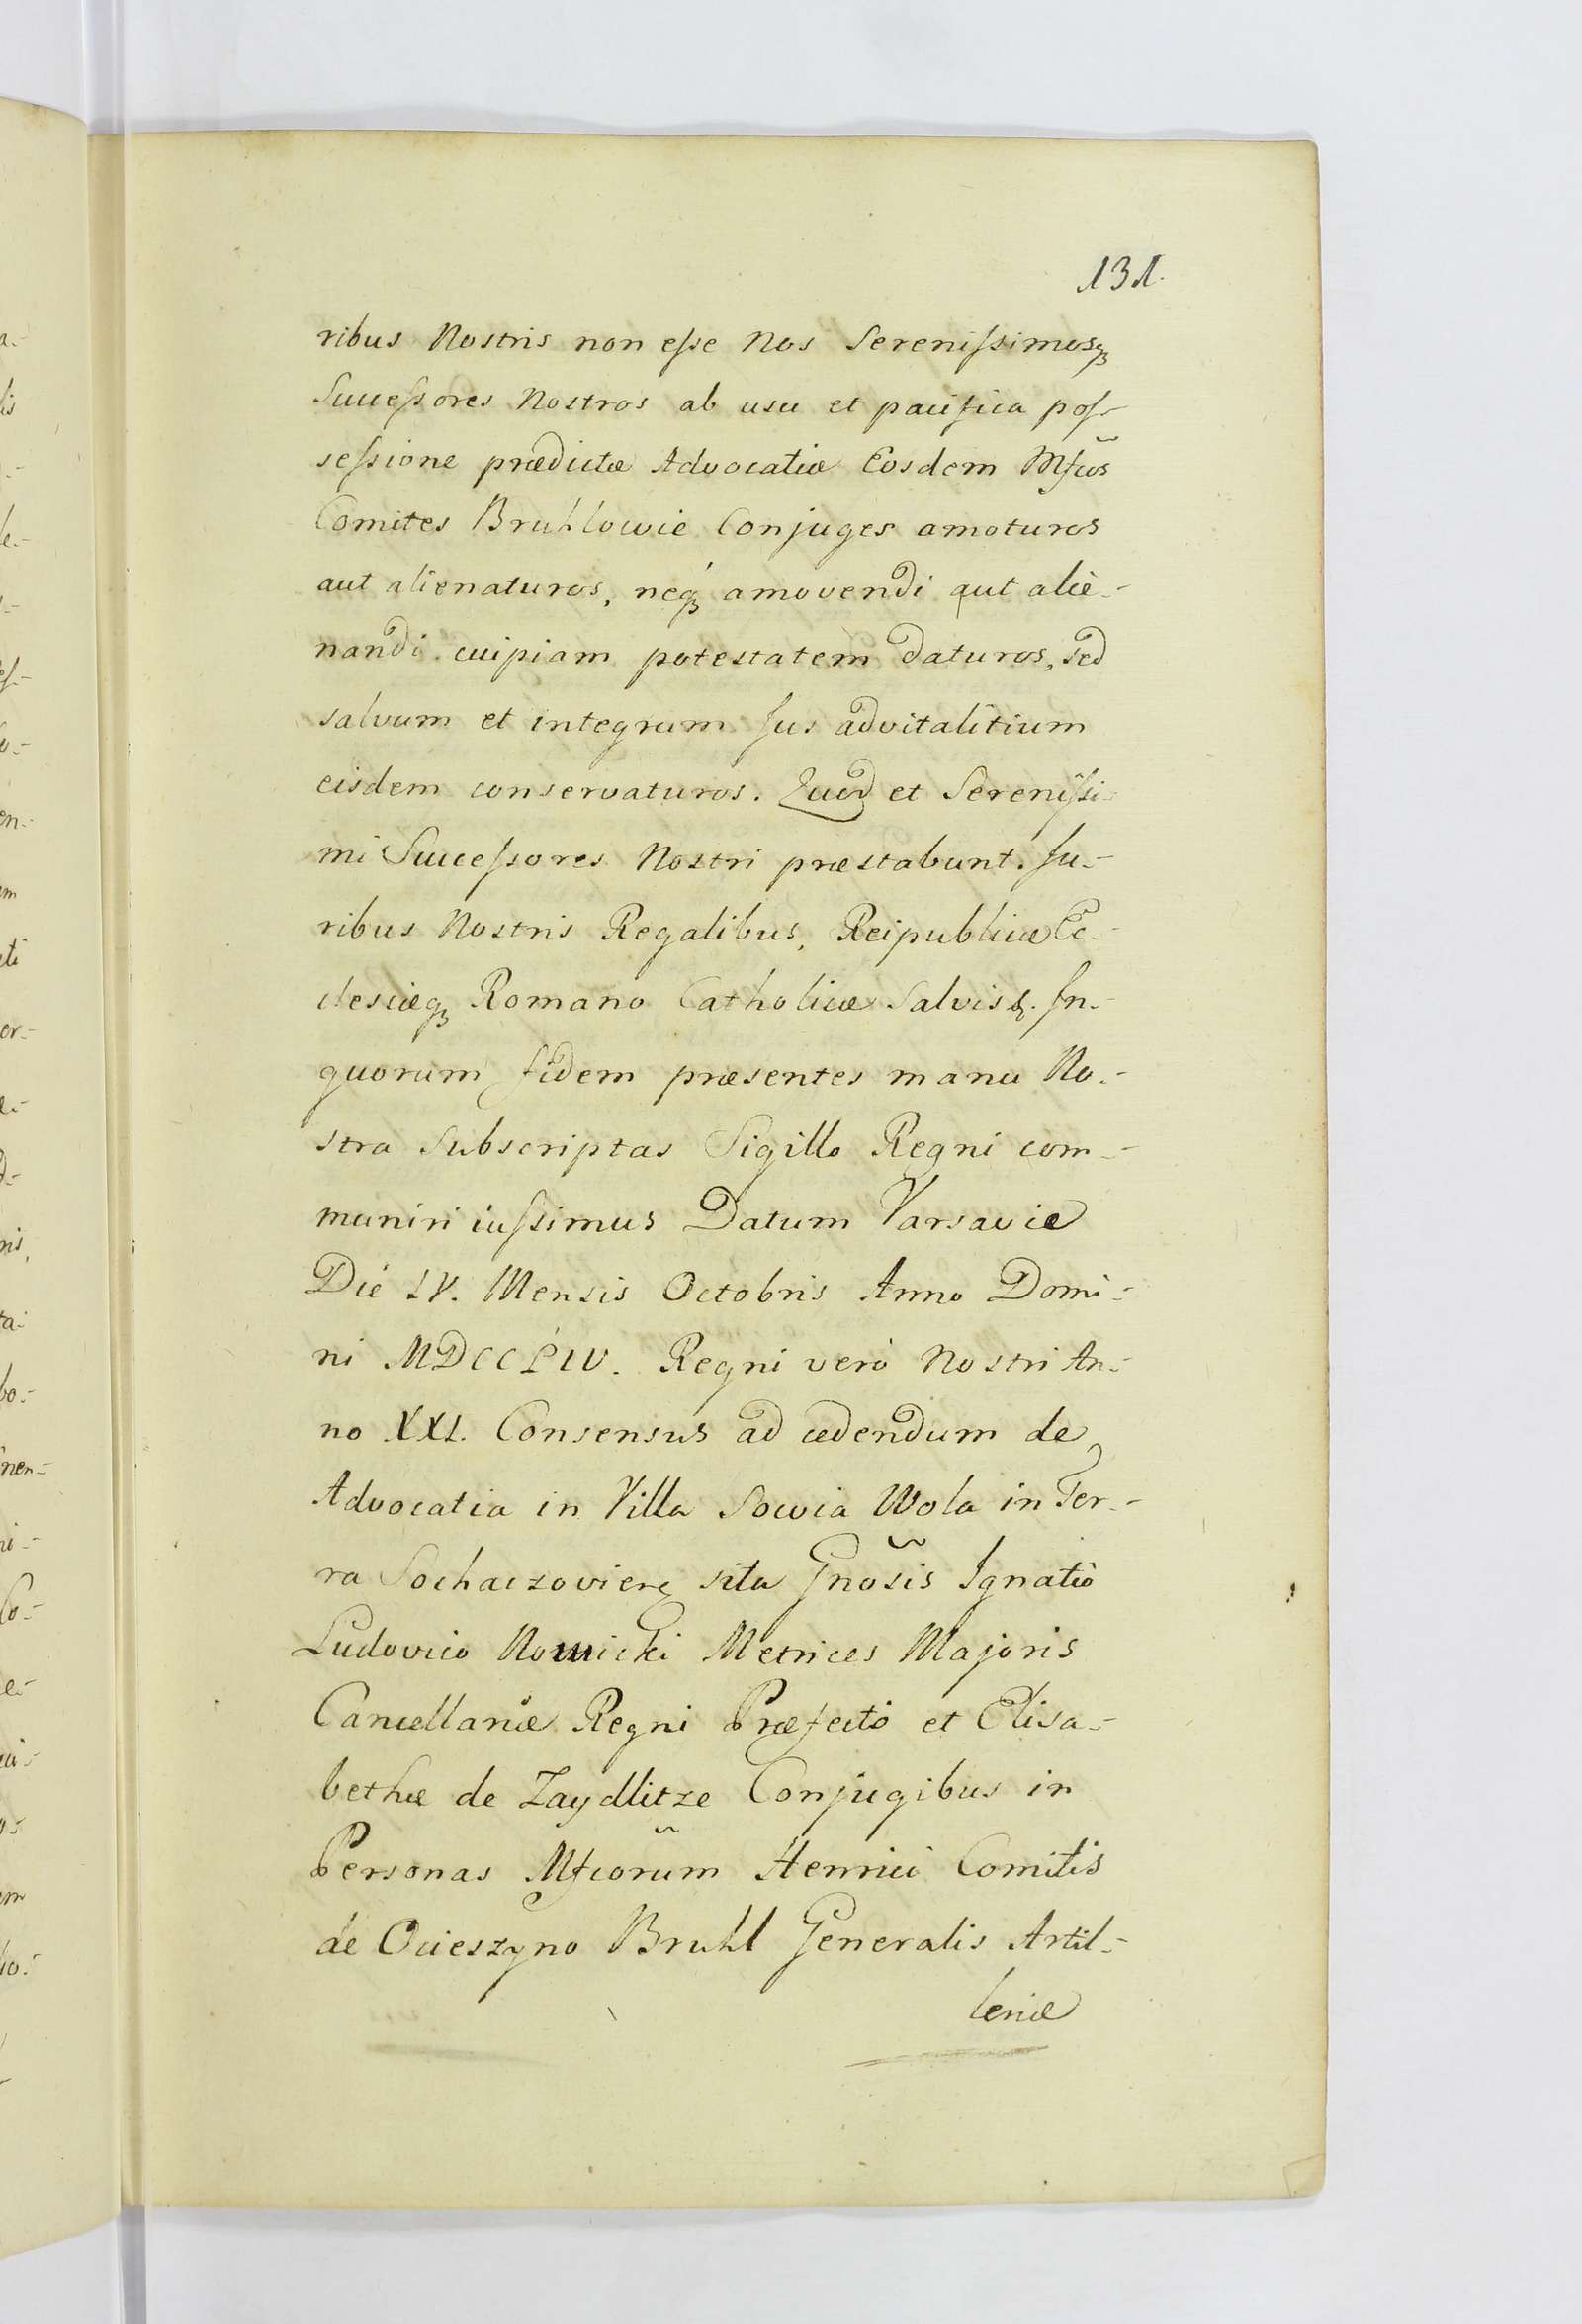 131.
ribus Nostris non esse Nos Serenissimosq
Successores Nostros ab usu et pacifica pos-
sessione prædictæ Advocatiæ Eosdem Mfcos
Comites Bruhlowie Conjuges amoturos
aut alienaturos, neq amovendi aut alie-
nandi cuipiam potestatem daturos, sed
salvum et integrum Jus advitalitium
eisdem conservaturos. Quod et Serenissi-
mi Successores Nostri præstabunt. Ju-
ribus Nostris Regalibus, Reipublicæ Ec-
clesiæq Romano Catholicæ salvis. In
quorum fidem præsentes manu No-
stra subscriptas Sigillo Regni com-
muniri iussimus Datum Varsaviæ
Die IV. Mensis Octobris Anno Domi-
ni MDCCLIV. Regni verò Nostri An-
no XXI. Consensus ad cedendum de
Advocatia in Villa Sowia Wola in Ter-
ra Sochaczovien sita Gnosis Ignatio
Ludovico Nowicki Metrices Majoris
Cancellariæ Regni Præfecto et Elisa-
bethæ de Zaydlitze Conjugibus in
Personas Mfcorum Henrici Comitis
de Ocieszyno Bruhl Generalis Artil-
leriæ